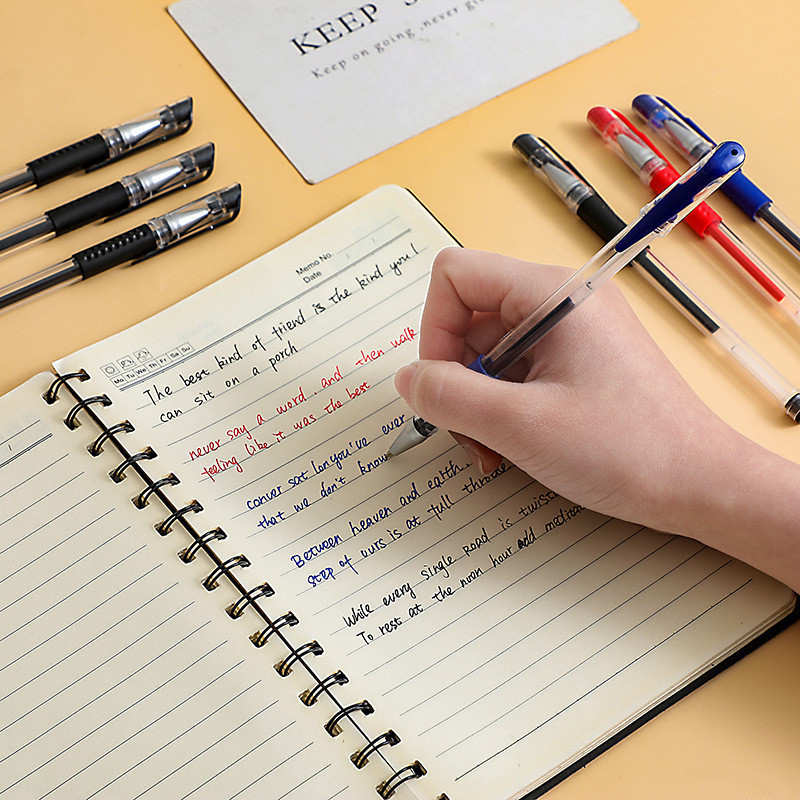 KEEP
Keep on going never
Memo No.
Date / /
Mo Tu We Th Fr Sa Su
The best kind of friend is the kind you!
can sit on a porch
never say a word, and then walk
feeling like it was the best
conver sat Ion you've ever
that we don't know
Between heaven and earth.
step of ours is at full throttle
While every single Road is twist
To rest at the noon hour